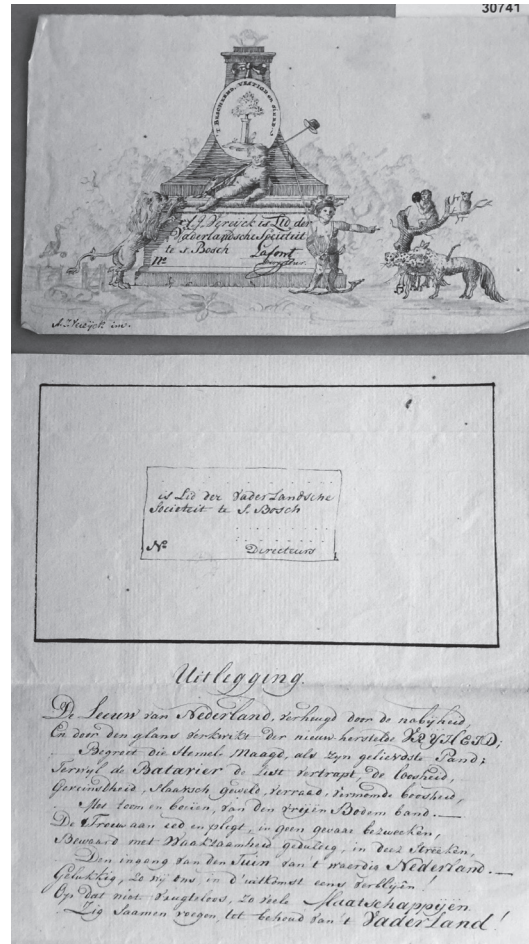 30741
BESCHERMD, VESTIGD EN
A. J. Vereijck is Lid der
Vaderlandsche Societeit
te s. Bosch
No. Lafont
A. J. Vereijck inv.
is Lid der VaderLandsche
Societeit te S. Bosch
No Directeurs
Uitlegging.
De Leeuw van Nederland, verheugd door de nabijheid,
En door den glans verkwikt der nieuw herstelde VRYHEID;
Begroet die Hemelmaagd, als zyn geliefdste Pand;
Terwyl de Batavier de List vertrapt, de loosheid,
Geveinsdheid, Slaafsch geweld, verraad, vermomde boosheid,
Met toom en boeien, van den vrijen Bodem band.—
De Trouw aan eed en pligt, in geen gevaar bezweeken,
Bewaard met Waakzaamheid geduurig, in deez Streeken,
Den ingang van den Tuin van 't waardig Nederland.—
Gelukkig, zo wy ons, in d'uitkomst eens verblyen!
Op dat niet vrugteloos, zo veele Maatschappyen
Zig saamen voegen, tot behoud van 't VaderLand!